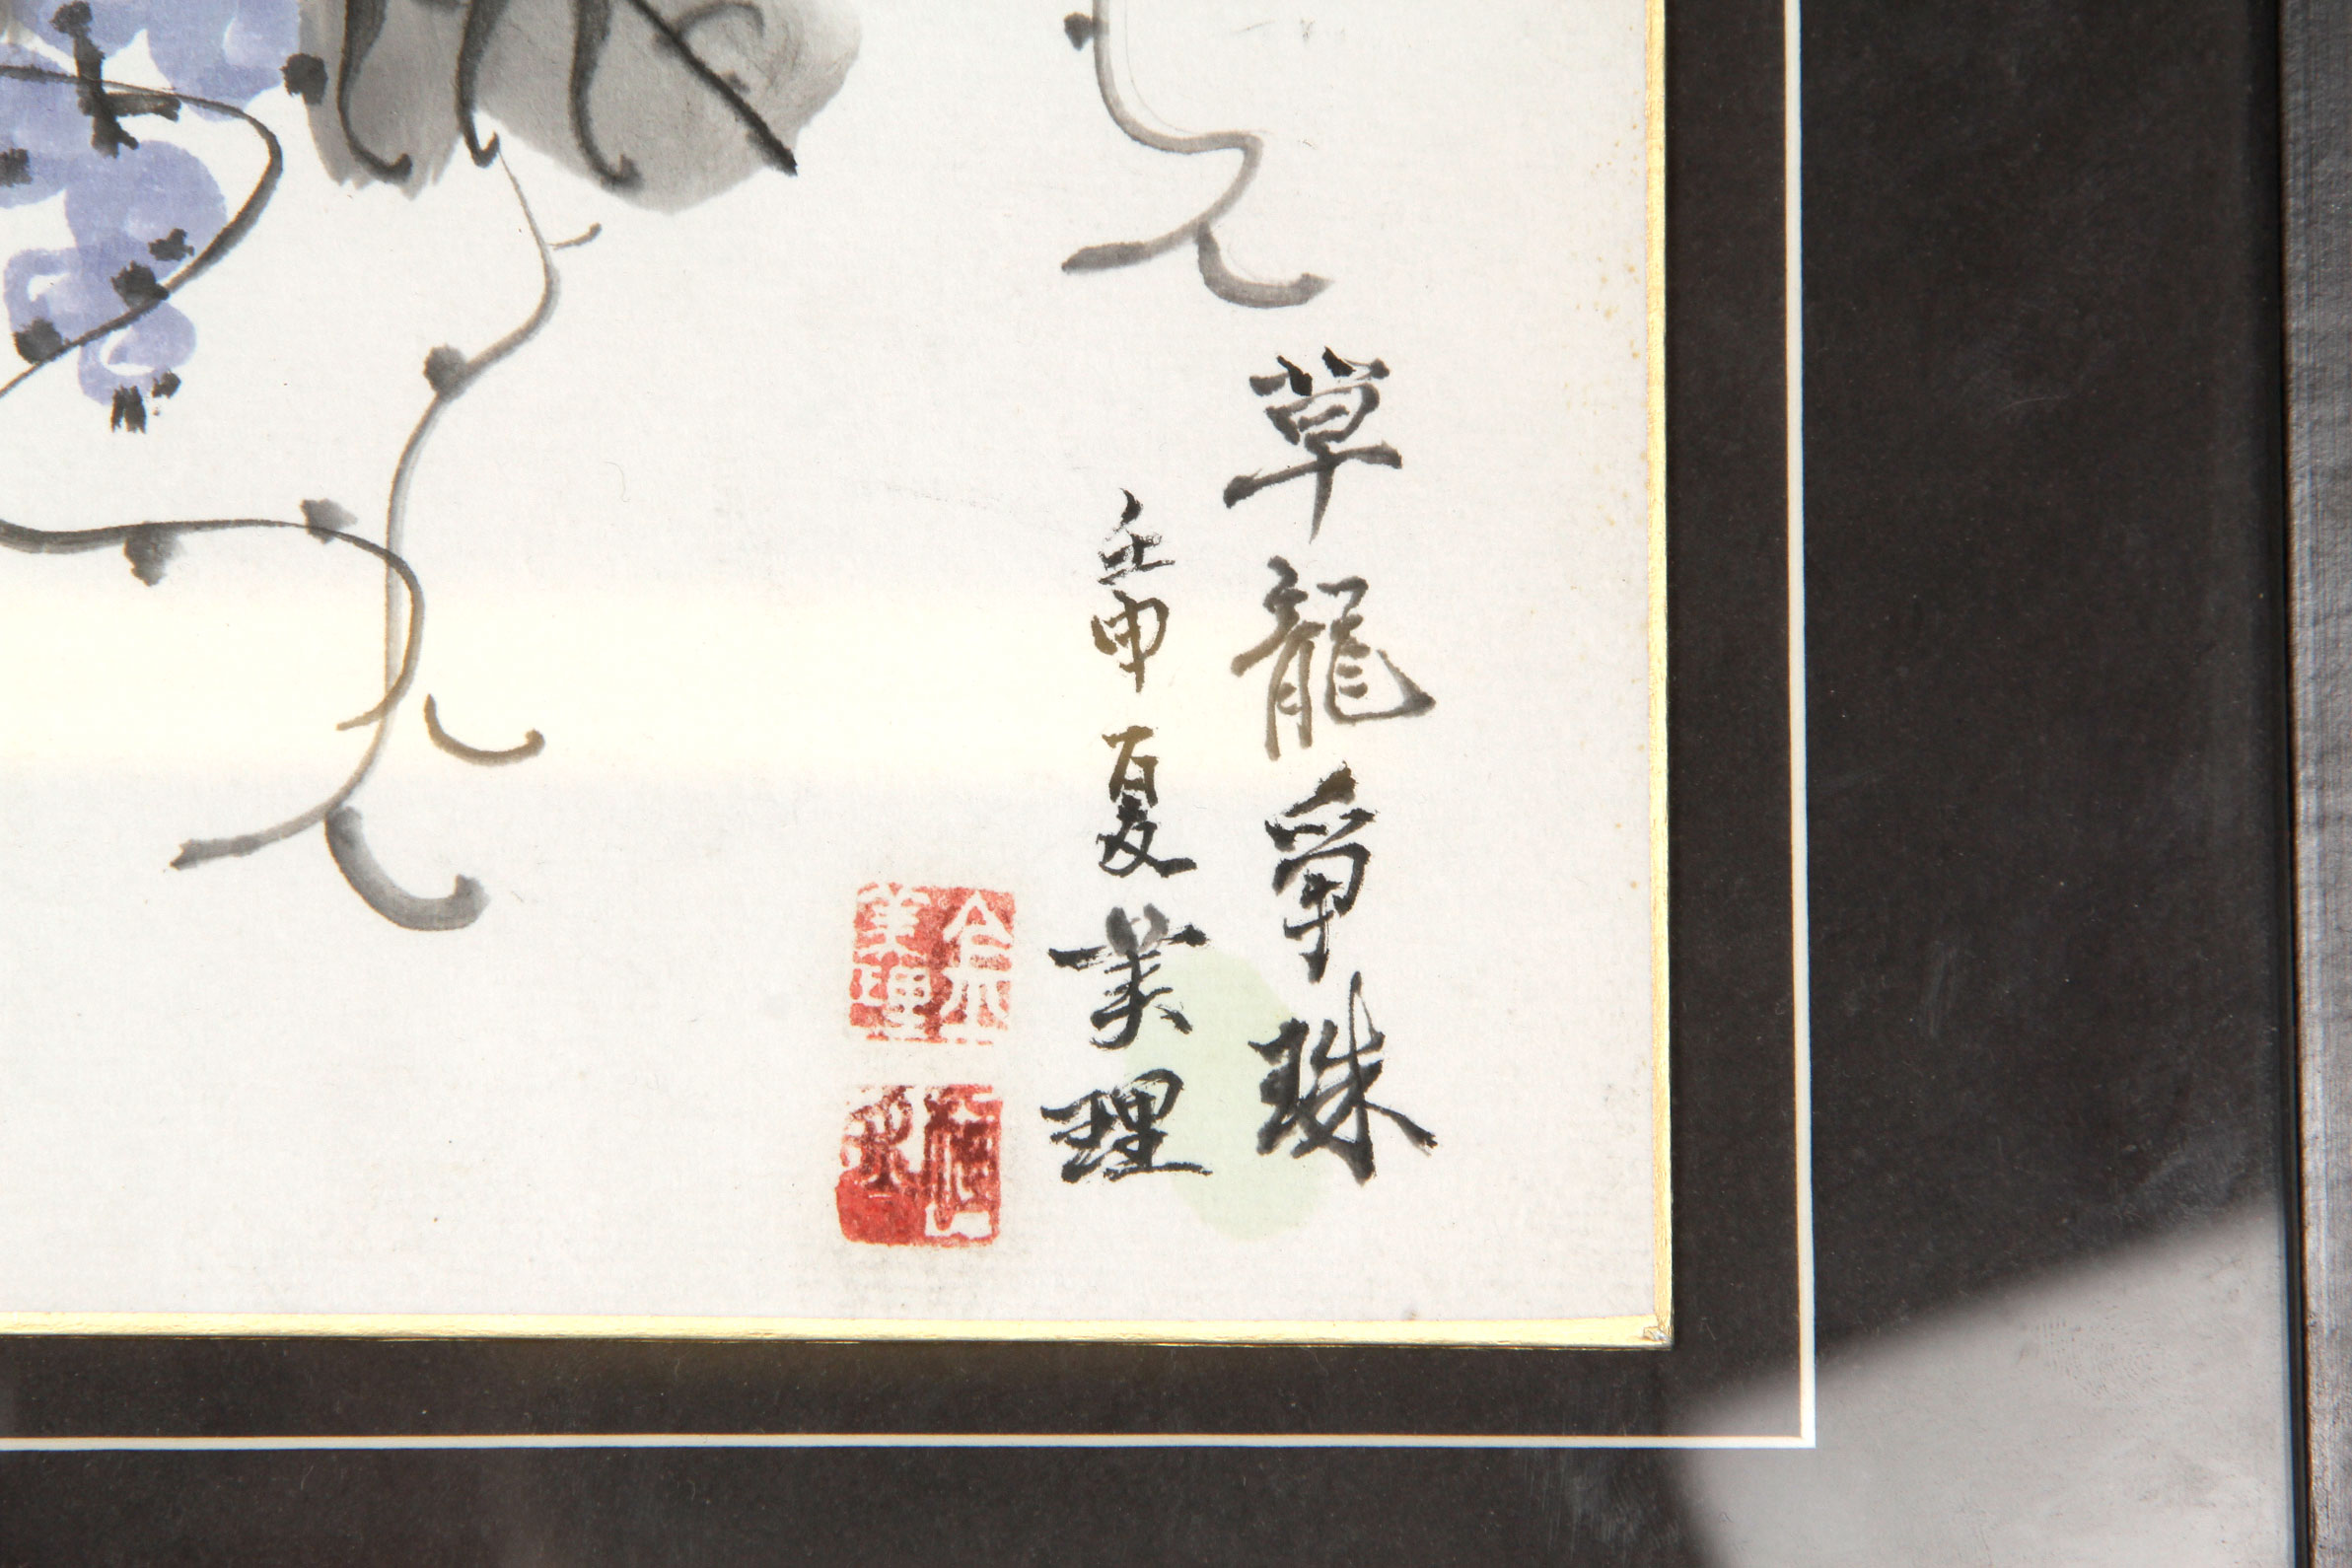 草龍爭珠
壬申夏美理
美理